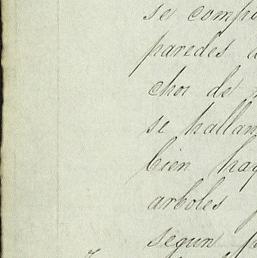 se compo
paredes
chos de
se hallan
bien hay
arboles
segun